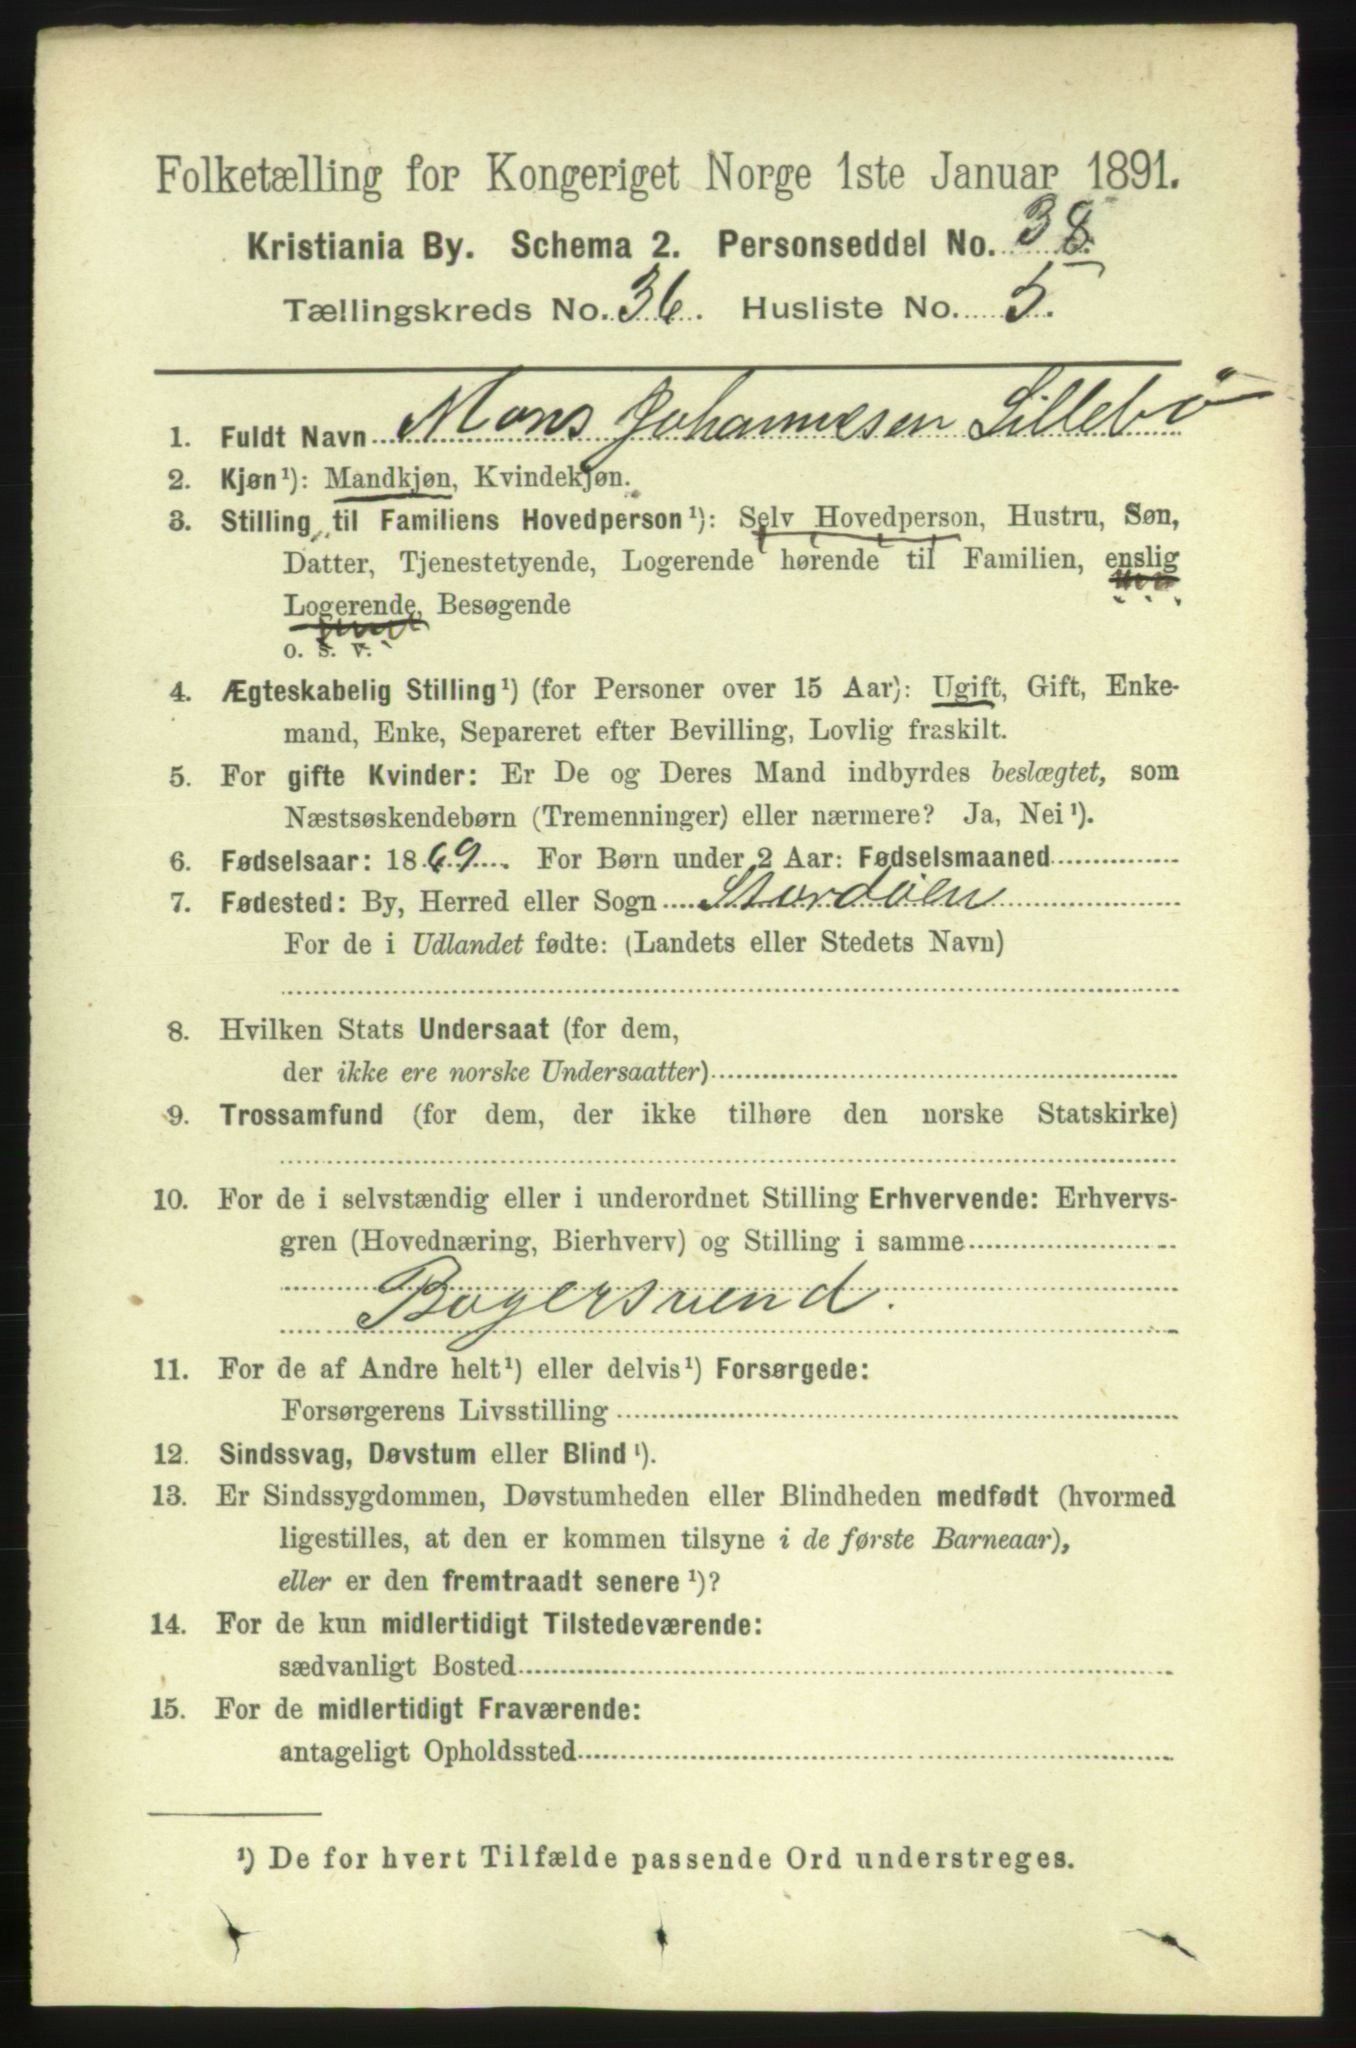 Folketælling for Kongeriget Norge 1ste Januar 1891.
Kristiania By. Schema 2. Personseddel No. 38.
Tællingskreds No. 36. Husliste No. 5.
1. Fuldt Navn Mons Johannesen Lillebø
2. Kjøn¹): Mandkjøn, Kvindekjøn.
3. Stilling til Familiens Hovedperson¹): Selv Hovedperson, Hustru, Søn,
Datter, Tjenestetyende, Logerende hørende til Familien, enslig
Logerende, Besøgende
o. s. v.
4. Ægteskabelig Stilling¹) (for Personer over 15 Aar): Ugift, Gift, Enke-
mand, Enke, Separeret efter Bevilling, Lovlig fraskilt.
5. For gifte Kvinder: Er De og Deres Mand indbyrdes beslægtet, som
Næstsøskendebørn (Tremenninger) eller nærmere? Ja, Nei¹).
6. Fødselsaar: 1869. For Børn under 2 Aar: Fødselsmaaned
7. Fødested: By, Herred eller Sogn Stordøen
For de i Udlandet fødte: (Landets eller Stedets Navn)
8. Hvilken Stats Undersaat (for dem,
der ikke ere norske Undersaatter)
9. Trossamfund (for dem, der ikke tilhøre den norske Statskirke)
10. For de i selvstændig eller i underordnet Stilling Erhvervende: Erhvervs-
gren (Hovednæring, Bierhverv) og Stilling i samme
Bagersvend.
11. For de af Andre helt¹) eller delvis¹) Forsørgede:
Forsørgerens Livsstilling
12. Sindssvag, Døvstum eller Blind¹).
13. Er Sindssygdommen, Døvstumheden eller Blindheden medfødt (hvormed
ligestilles, at den er kommen tilsyne i de første Barneaar),
eller er den fremtraadt senere¹)?
14. For de kun midlertidigt Tilstedeværende:
sædvanligt Bosted
15. For de midlertidigt Fraværende:
antageligt Opholdssted
¹) De for hvert Tilfælde passende Ord understreges.